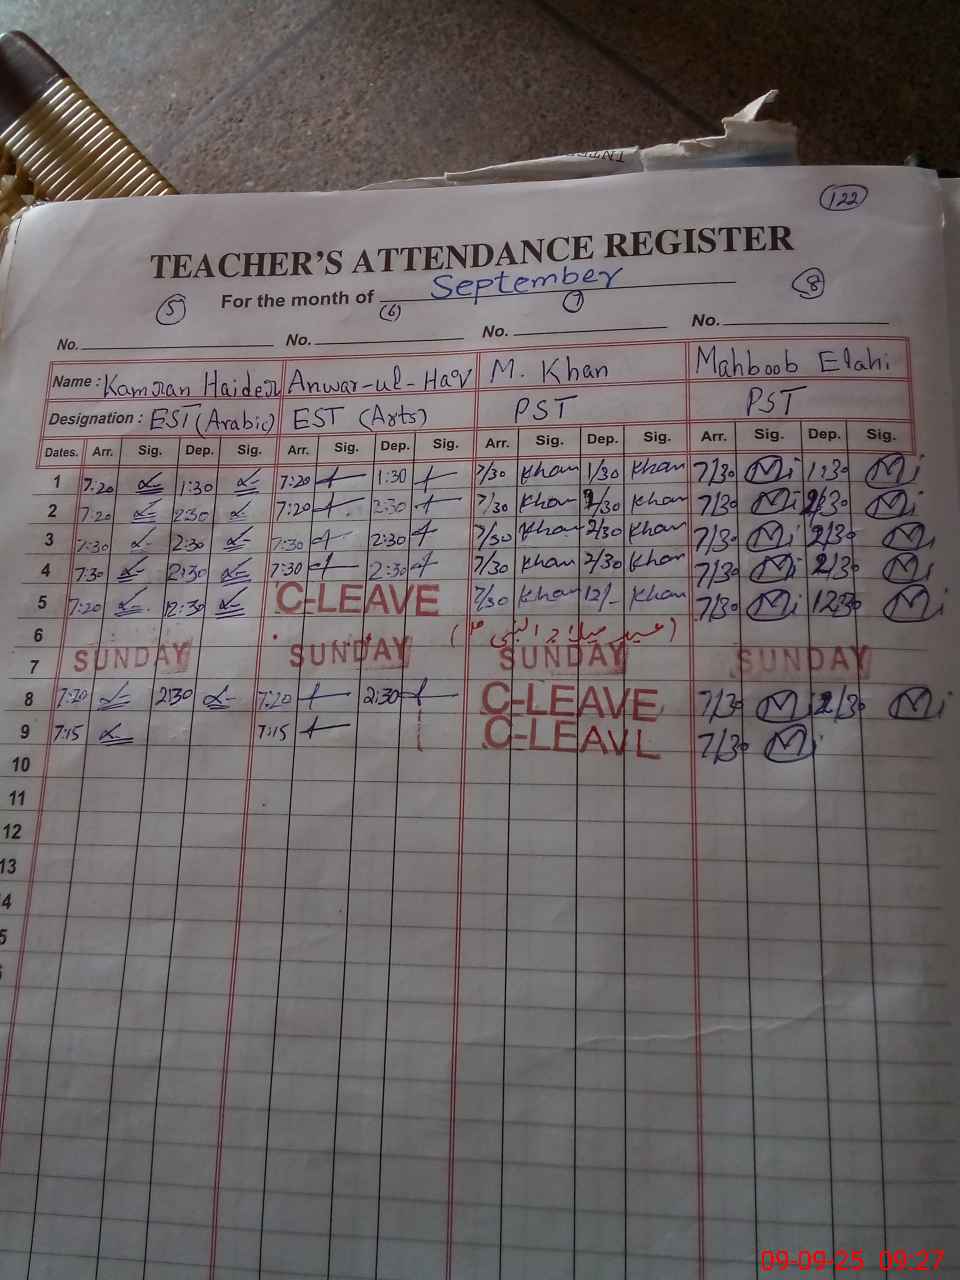 122
TEACHER'S ATTENDANCE REGISTER
For the month of September
5 (6) 7 8
No. No. No. No.
Name : Kamran Haider Anwar-ul-Haq M. Khan Mahboob Elahi
Designation : EST (Arabic) EST (Arts) PST PST
Dates. Arr. Sig. Dep. Sig. Arr. Sig. Dep. Sig. Arr. Sig. Dep. Sig. Arr. Sig. Dep. Sig.
1 7:20 1:30 7:20 1:30 7/30 Khan 1/30 Khan 7/30 Mi 1:30 Mi
2 7:20 2:30 7:20 2:30 7/30 Khan 2/30 Khan 7/30 Mi 2/30 Mi
3 7:30 2:30 7:30 2:30 7/30 Khan 2/30 Khan 7/30 Mi 2/30 Mi
4 7:30 2:30 7:30 2:30 7/30 Khan 2/30 Khan 7/30 Mi 2/30 Mi
5 7:20 12:30 C-LEAVE 7/30 Khan 12/- Khan 7/30 Mi 12:30 Mi
6 (عید میلاد النبی ؐ)
7 SUNDAY SUNDAY SUNDAY SUNDAY
8 7:20 2:30 7:20 2:30 C-LEAVE 7/30 Mi 2/30 Mi
9 7:15 7:15 C-LEAVE 7/30 Mi
10
11
12
13
4
5
09-09-25 09:27